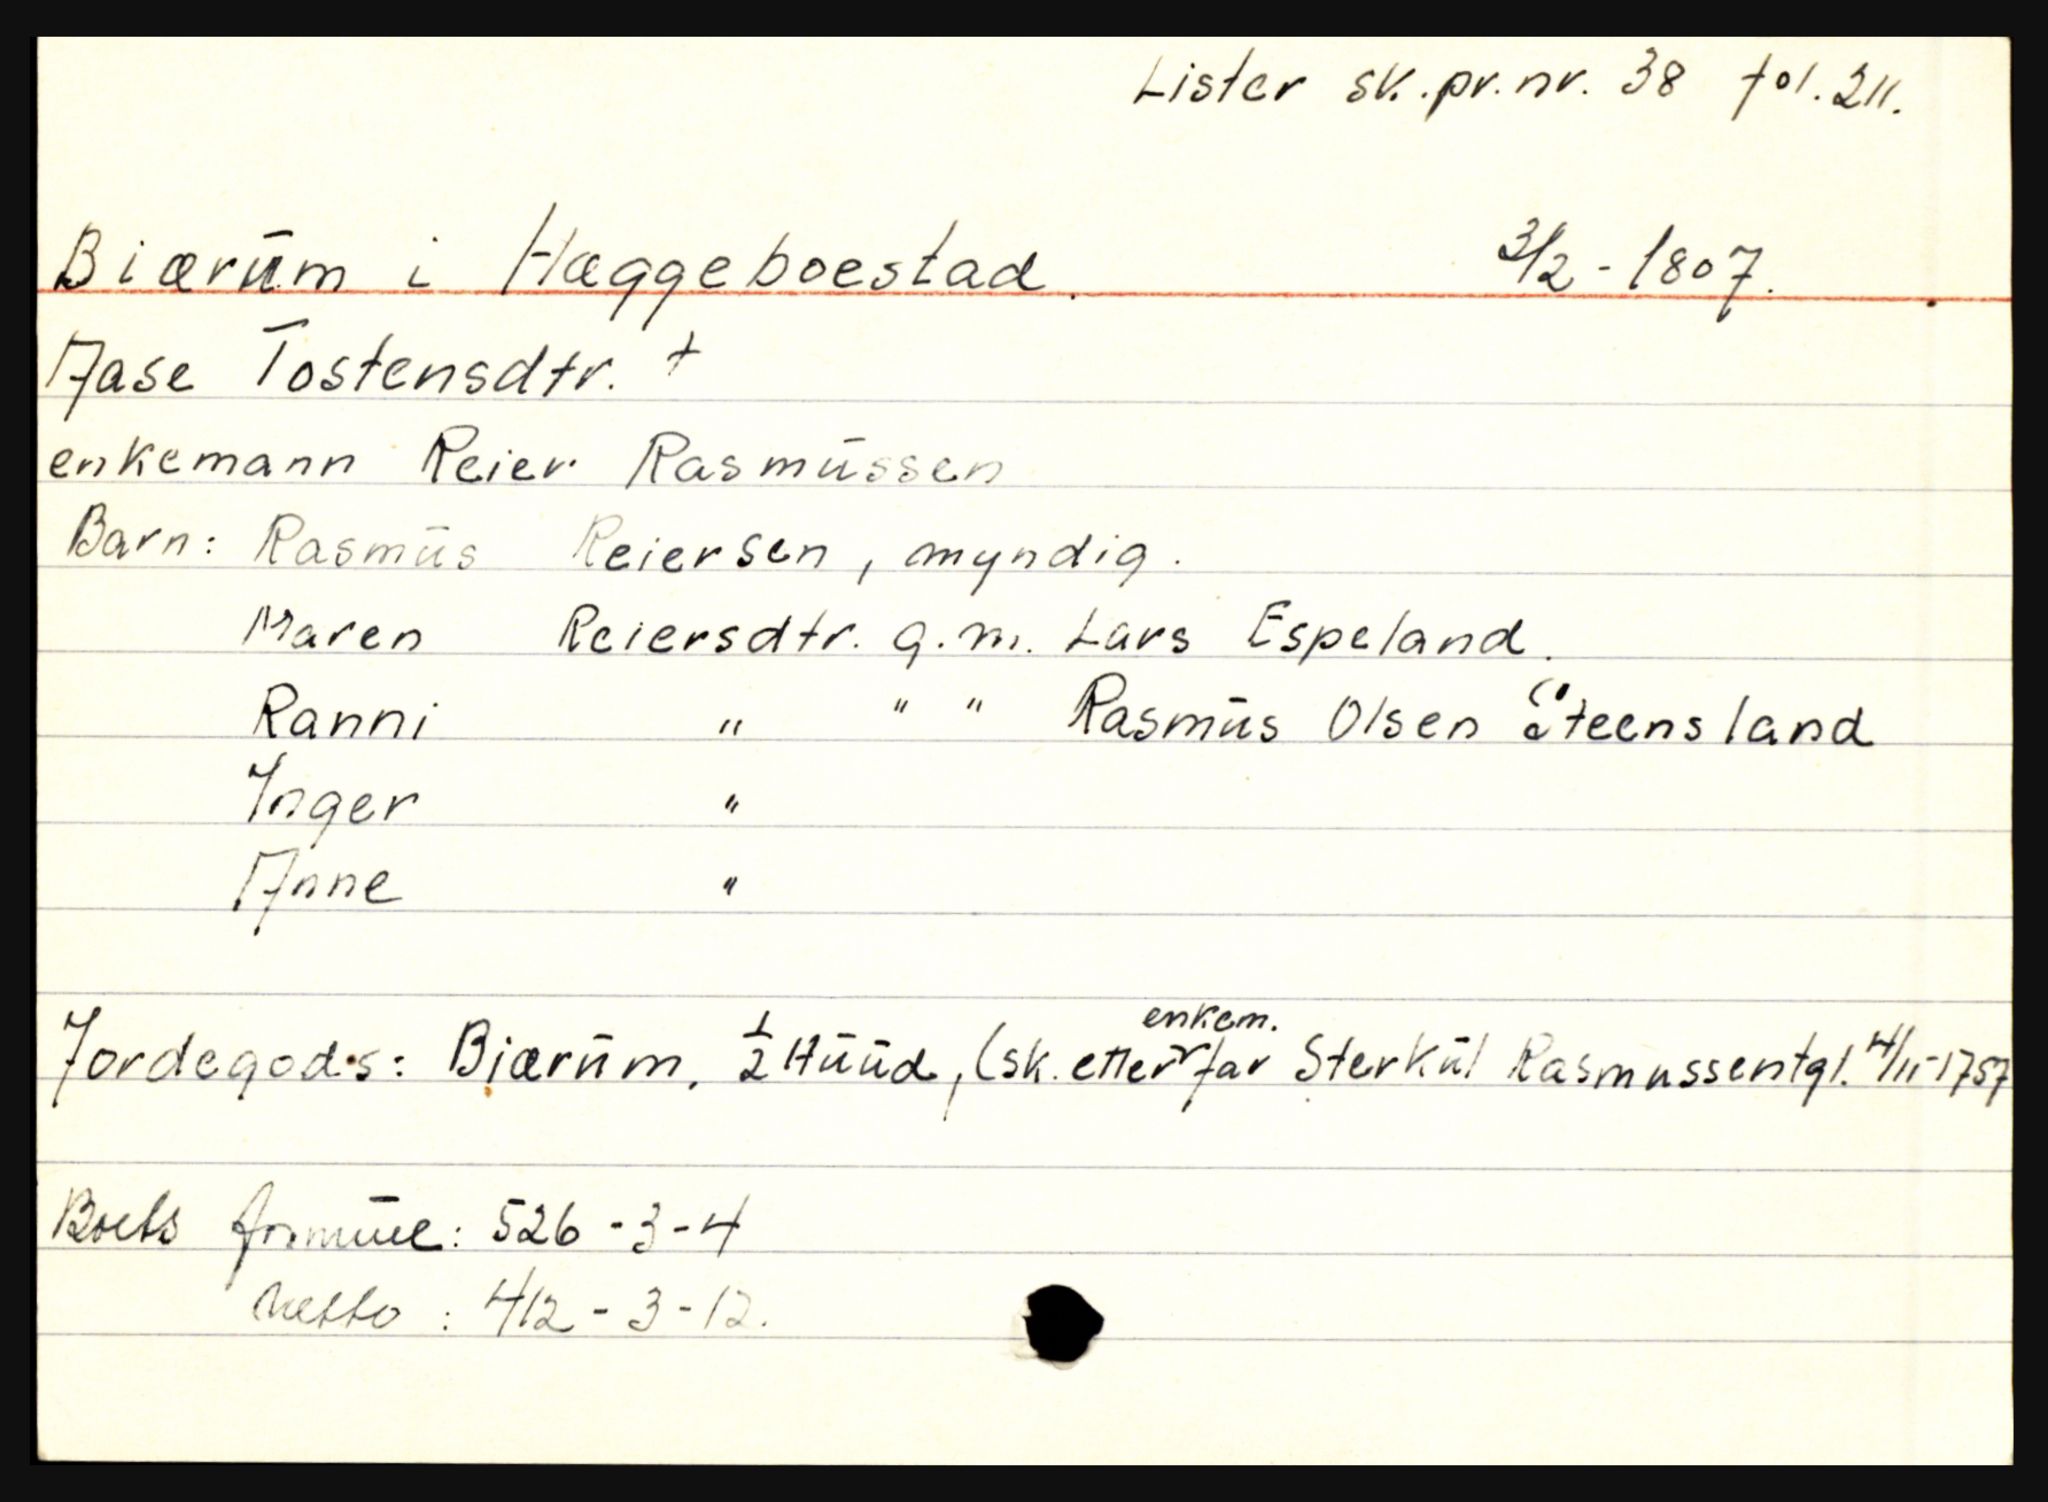 Lister sk.pr.nr. 38 fol.211.
Biærum i Hæggeboestad. 3/2-1807.
Aase Tostensdtr. +
enkemann Reier Rasmussen
Barn: Rasmus Reiersen, myndig.
Maren Reiersdtr. g.m. Lars Espeland.
Ranni " " " Rasmus Olsen Steensland
Inger "
Anne "
enkem.
Jordegods: Biærum, 1/2 Huud, (sk. etter far Sterkul Rasmussen tgl. 4/11-1757
Boets formue: 526-3-4
netto: 412-3-12.